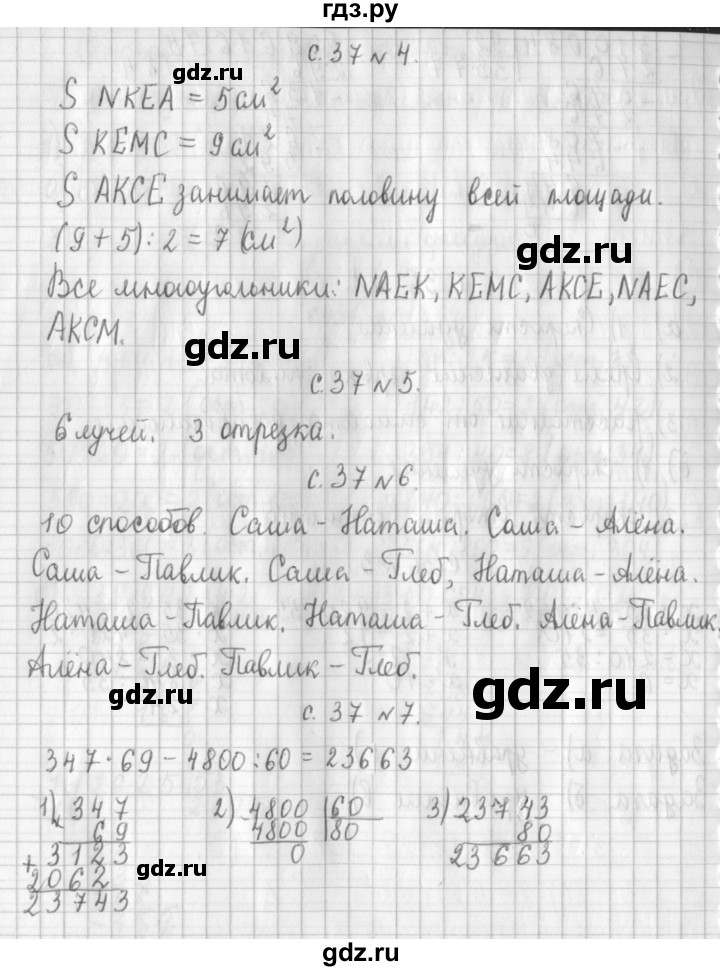 гдз.ру
с. 37 № 4.
gdz.ru
S NKEA = 5 см²
S KEMC = 9 см²
S AKCE занимает половину всей площади.
(9 + 5) : 2 = 7 (см²)
gdz.ru
Все многоугольники: NAEK, KEMC, AKCE, NAEC,
AKCM.
gdz.ru
с. 37 № 5.
6 лучей. 3 отрезка.
с. 37 № 6.
10 способов. Саша - Наташа. Саша - Алёна.
Саша - Павлик. Саша - Глеб, Наташа - Алёна.
Наташа - Павлик. Наташа - Глеб. Алёна - Павлик.
Алёна - Глеб. Павлик - Глеб.
gdz.ru
gdz.ru
с. 37 № 7.
347 · 69 - 4800 : 60 = 23663
1) × 347 2) - 4800 | 60 3) - 23743
69 4800 | 80 80
+ 3123 0 23663
2062
23743
gdz.ru
gdz.ru
gdz.ru